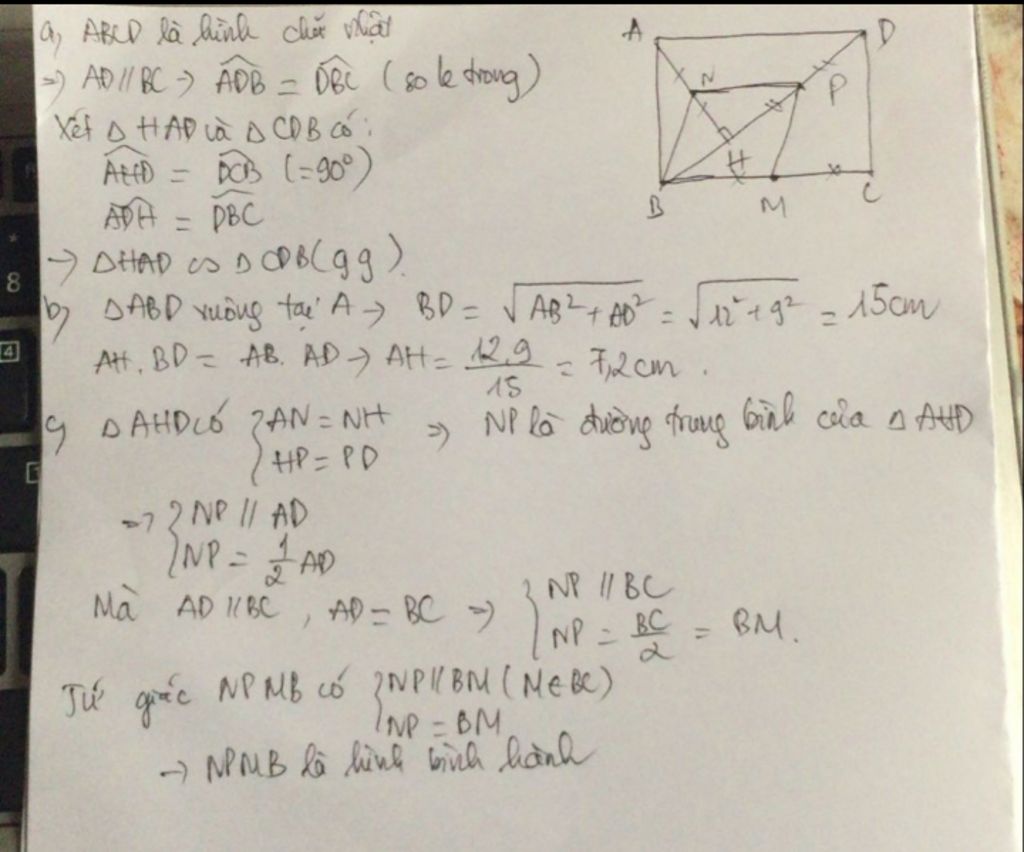 a, ABCD là hình chữ nhật
=> AD // BC → ADB = DBC (so le trong)
Xét △ HAD và △ CDB có:
AHD = DCB (=90°)
ADH = DBC
→ △HAD ∽ △ CDB (gg).
b, △ABD vuông tại A → BD = √(AB² + AD²) = √(12² + 9²) = 15cm
AH . BD = AB. AD → AH = 12.9/15 = 7,2cm .
c, △ AHD có { AN = NH => NP là đường trung bình của △ AHD
HP = PD
=> { NP // AD
NP = 1/2 AD
Mà AD // BC , AD = BC => { NP // BC
NP = BC/2 = BM.
Tứ giác NPMB có { NP // BM (M ∈ BC)
NP = BM
→ NPMB là hình bình hành
A
D
N
P
H
B
M
C
*
8
4